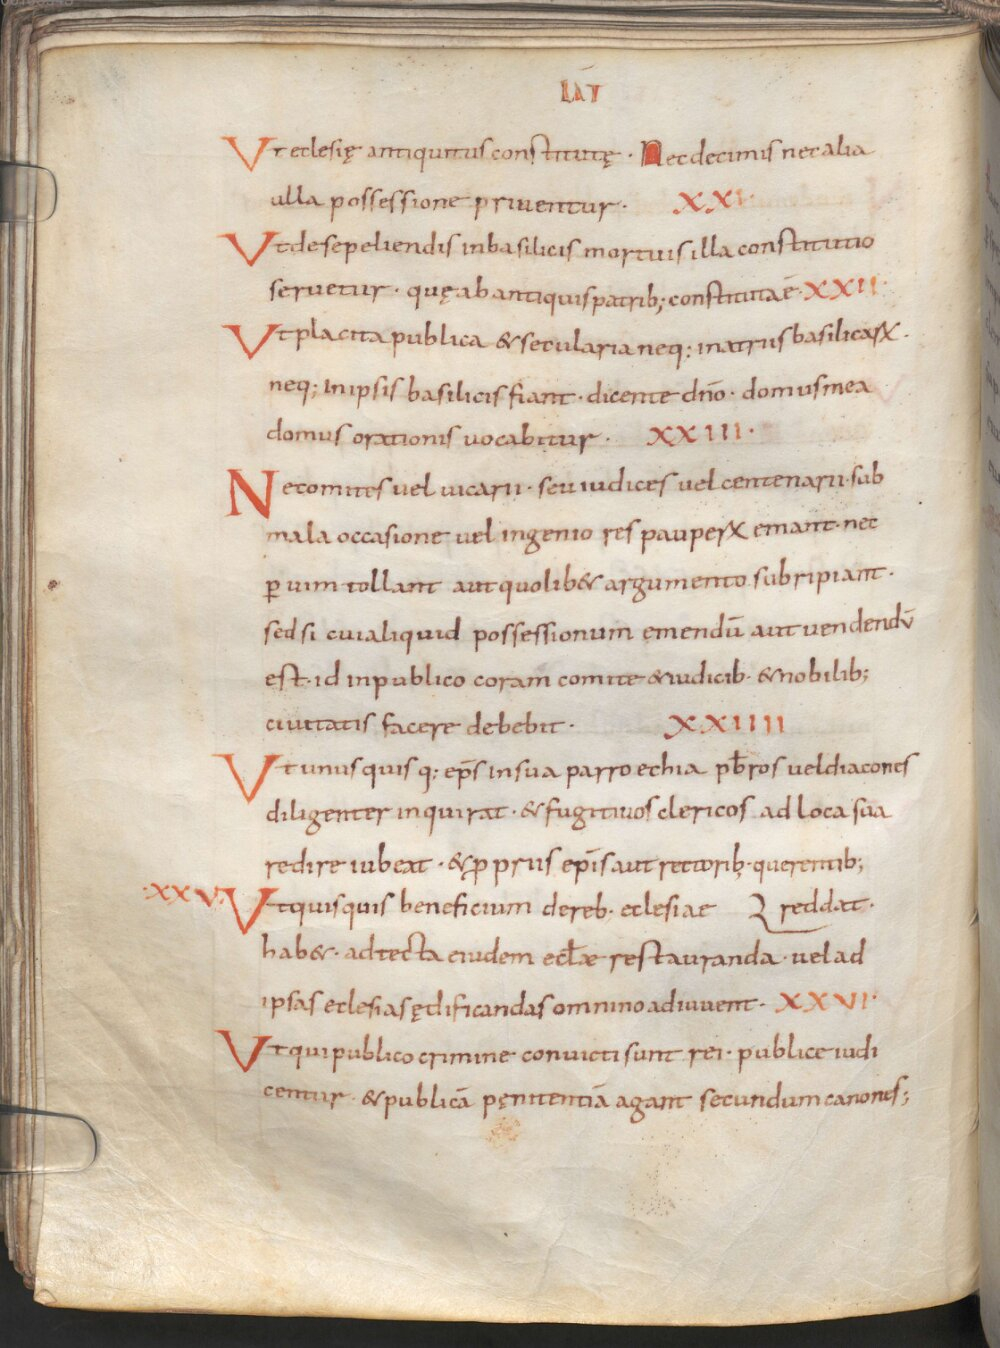 Ut eclesię antiquitus constitutę · Nec decimis nec alia
ulla possessione priuentur · XXI·
Ut de sepeliendis in basilicis mortuis illa constitutio
seruetur · quę ab antiquis patrib; constituta ē · XXII·
Ut placita publica & secularia neq; in atriis basilicaꝝ ·
neq; in ipsis basilicis fiant · dicente dño · domus mea
domus orationis uocabitur · XXIII·
Ne comites uel uicarii · seu iudices uel centenarii · sub
mala occasione uel ingenio res pauperꝝ emant · nec
ꝑ uim tollant aut quolib& argumento subripiant ·
sed si cui aliquid possessionum emendū aut uendendū
est · id in publico coram comite & iudicib · & nobilib;
ciuitatis facere debebit · XXIIII
Ut unusquisq; ep̄s in sua parroechia pb̄ros uel diacones
diligenter inquirat · & fugitiuos clericos ad loca sua
redire iubeat · & ꝓpriis ep̄is aut rectorib; querentib;
·XXV· Ut quisquis beneficium de reb · eclesiae reddat ·
hab& · ad tecta eiudem ecl̄ae restauranda · uel ad
ipsas eclesias ędificandas omnino adiuuent · XXVI·
Ut qui publico crimine conuicti sunt rei · publice iudi
centur · & publicā pęnitentiā agant secundum canones;